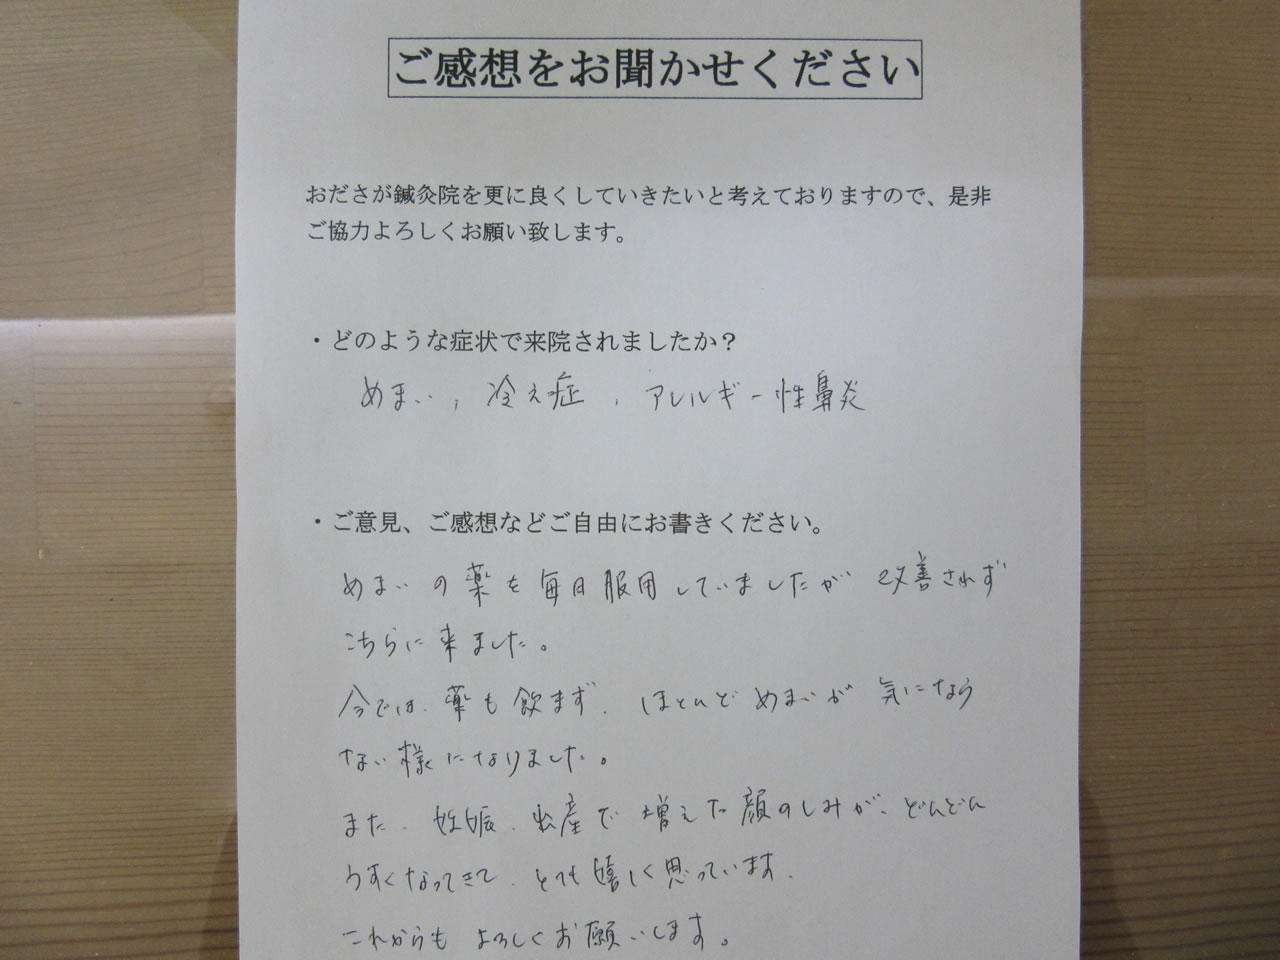 ご感想をお聞かせください
おださが鍼灸院を更に良くしていきたいと考えておりますので、是非
ご協力よろしくお願い致します。
・どのような症状で来院されましたか？
めまい, 冷え症, アレルギー性鼻炎
・ご意見、ご感想などご自由にお書きください。
めまいの薬を毎日服用していましたが 改善されず
こちらに来ました。
今では、薬も飲まず、ほとんどめまいが 気になら
ない様になりました。
また、妊娠、出産で増えた顔のしみが、どんどん
うすくなってきて、とても嬉しく思っています。
これからも よろしくお願いします。